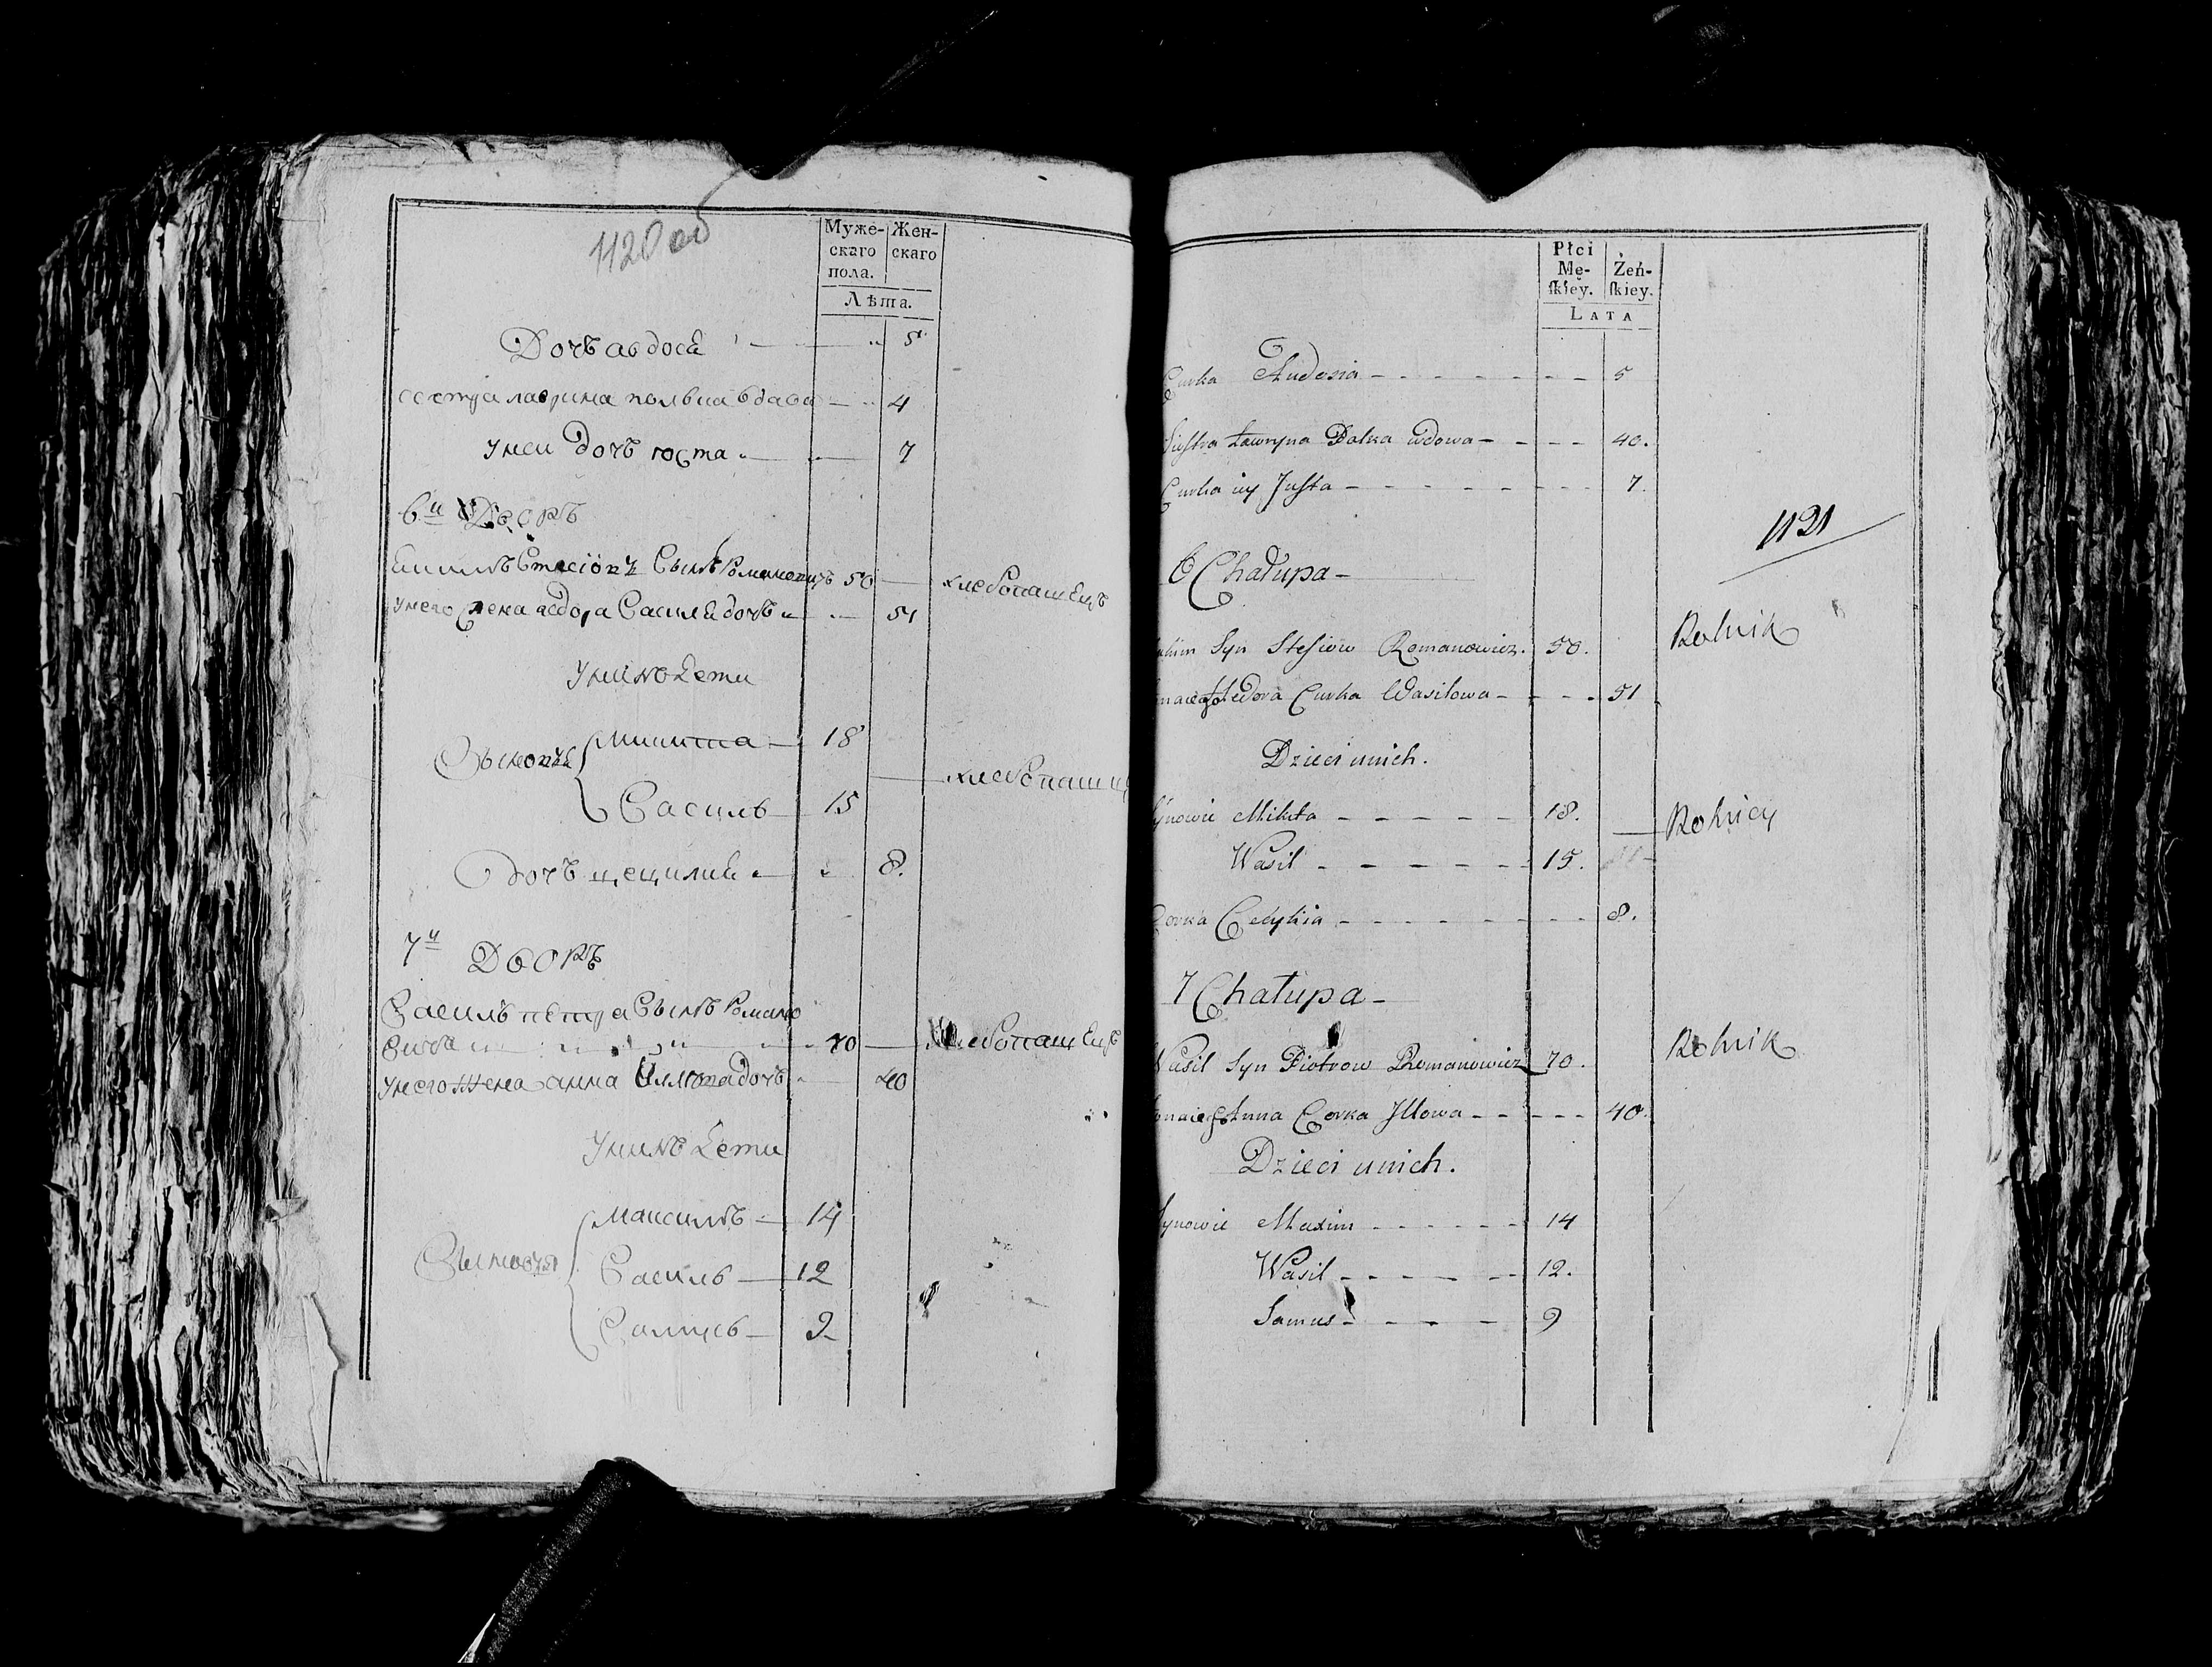 1120 об
Муже- Жен-
скаго скаго
пола.
Лѣта.
Дочь авдоси 5
сестра лаврина палька вдова 4
унеи дочь юста 7
6й Дворъ
Стесіовъ Сынъ Романовичъ 50 хлебопашецъ
унего жена авдора Василя дочь 51
унихъ дети
Сыновья Микита 18
хлебопашцы
Василь 15
дочь цецилия 8.
7й Дворъ
Василь петра Сынъ Романо
вичъ 70 хлебопашецъ
унего жена анна дочь 40
унихъ дети
Сыновья максимъ 14
Василь 12
Самусь 9
Płci
Mę- Żeń-
ſkiey. ſkiey.
LATA
Curka Audosia 5
Siestra Ławryna Palka wdowa 40.
Curka iey Justa 7.
1121
6 Chałupa
Syn Stesiow Romanowicz. 50. Rolnik
Curka Wasilowa 51
Dzieci unich.
Synowie Mikita 18. Rolnicy
Wasil 15.
Corka Cecylia 8.
7 Chałupa
Wasil Syn Piotrow Romanowicz 70. Rolnik
Anna Corka Jllowa 40.
Dzieci unich.
Synowie Maxim 14
Wasil 12.
Samus 9